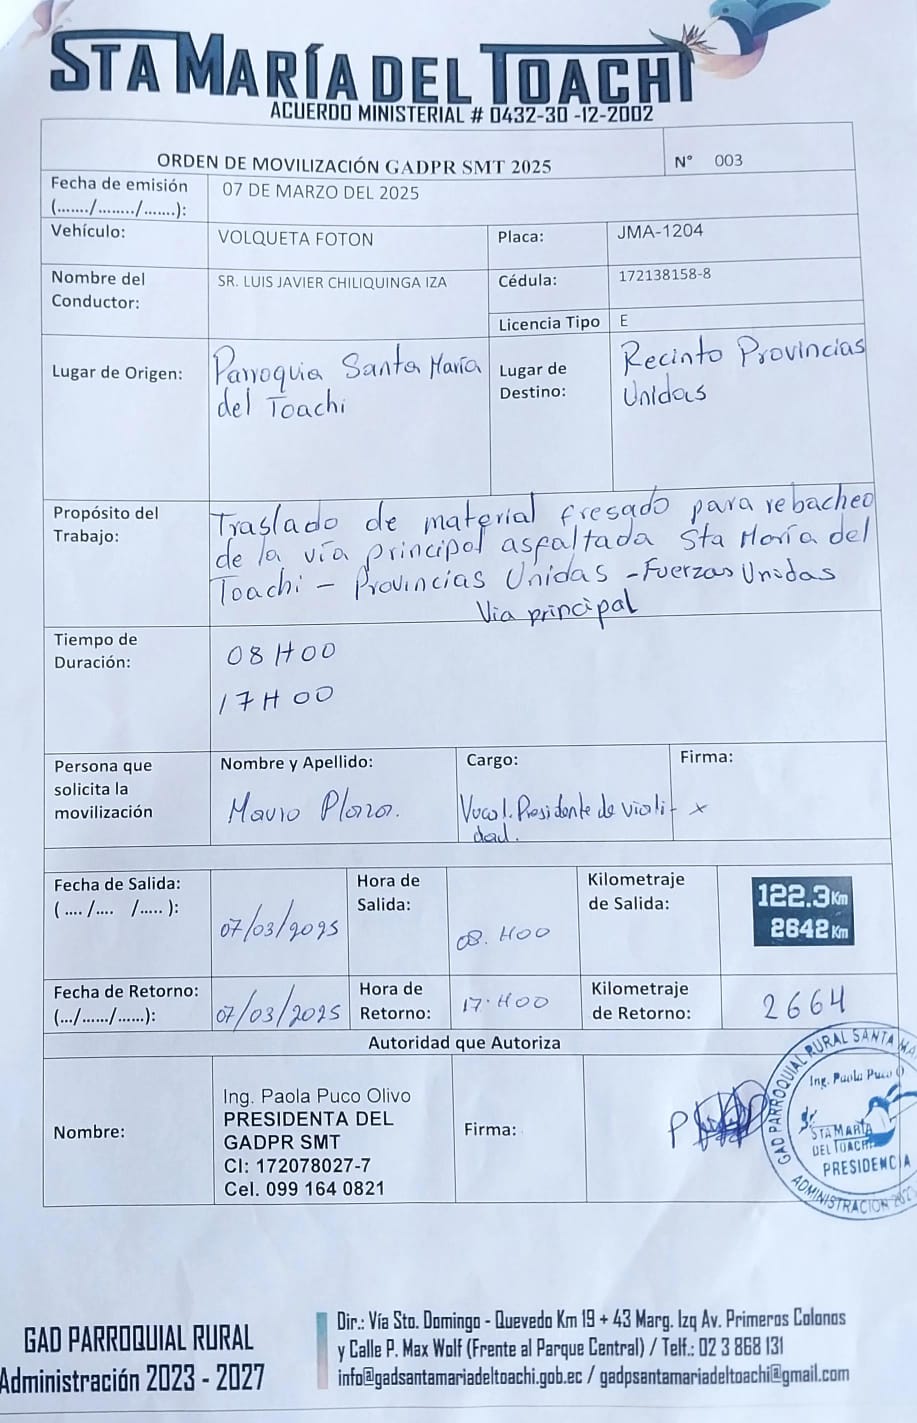 STA MARÍA DEL TOACHI
ACUERDO MINISTERIAL # 0432-30 -12-2002
ORDEN DE MOVILIZACIÓN GADPR SMT 2025 N° 003
Fecha de emisión
(......./......../.......):
07 DE MARZO DEL 2025
Vehículo: VOLQUETA FOTON Placa: JMA-1204
Nombre del
Conductor:
SR. LUIS JAVIER CHILIQUINGA IZA Cédula: 172138158-8
Licencia Tipo E
Lugar de Origen:
Parroquia Santa María
del Toachi
Lugar de
Destino:
Recinto Provincias
Unidas
Propósito del
Trabajo:
Traslado de material fresado para rebacheo
de la vía principal asfaltada Sta María del
Toachi - Provincias Unidas - Fuerzas Unidas
Via principal
Tiempo de
Duración:
08H00
17H00
Persona que
solicita la
movilización
Nombre y Apellido:
Mauro Plaza.
Cargo:
Vocal. Presidente de viali-
dad.
Firma:
x
Fecha de Salida:
( .... /.... /..... ):
07/03/2025
Hora de
Salida:
08.H00
Kilometraje
de Salida:
122.3Km
2642Km
Fecha de Retorno:
(.../....../......):
07/03/2025
Hora de
Retorno:
17.H00
Kilometraje
de Retorno:
2664
Autoridad que Autoriza
Nombre:
Ing. Paola Puco Olivo
PRESIDENTA DEL
GADPR SMT
CI: 172078027-7
Cel. 099 164 0821
Firma:
GAD PARROQUIAL RURAL SANTA MA
Ing. Paola Puco O
STA MARÍA
DEL TOACHI
PRESIDENCIA
ADMINISTRACION
GAD PARROQUIAL RURAL
Administración 2023 - 2027
Dir.: Vía Sto. Domingo - Quevedo Km 19 + 43 Marg. Izq Av. Primeros Colonos
y Calle P. Max Wolf (Frente al Parque Central) / Telf.: 02 3 868 131
info@gadsantamariadeltoachi.gob.ec / gadpsantamariadeltoachi@gmail.com